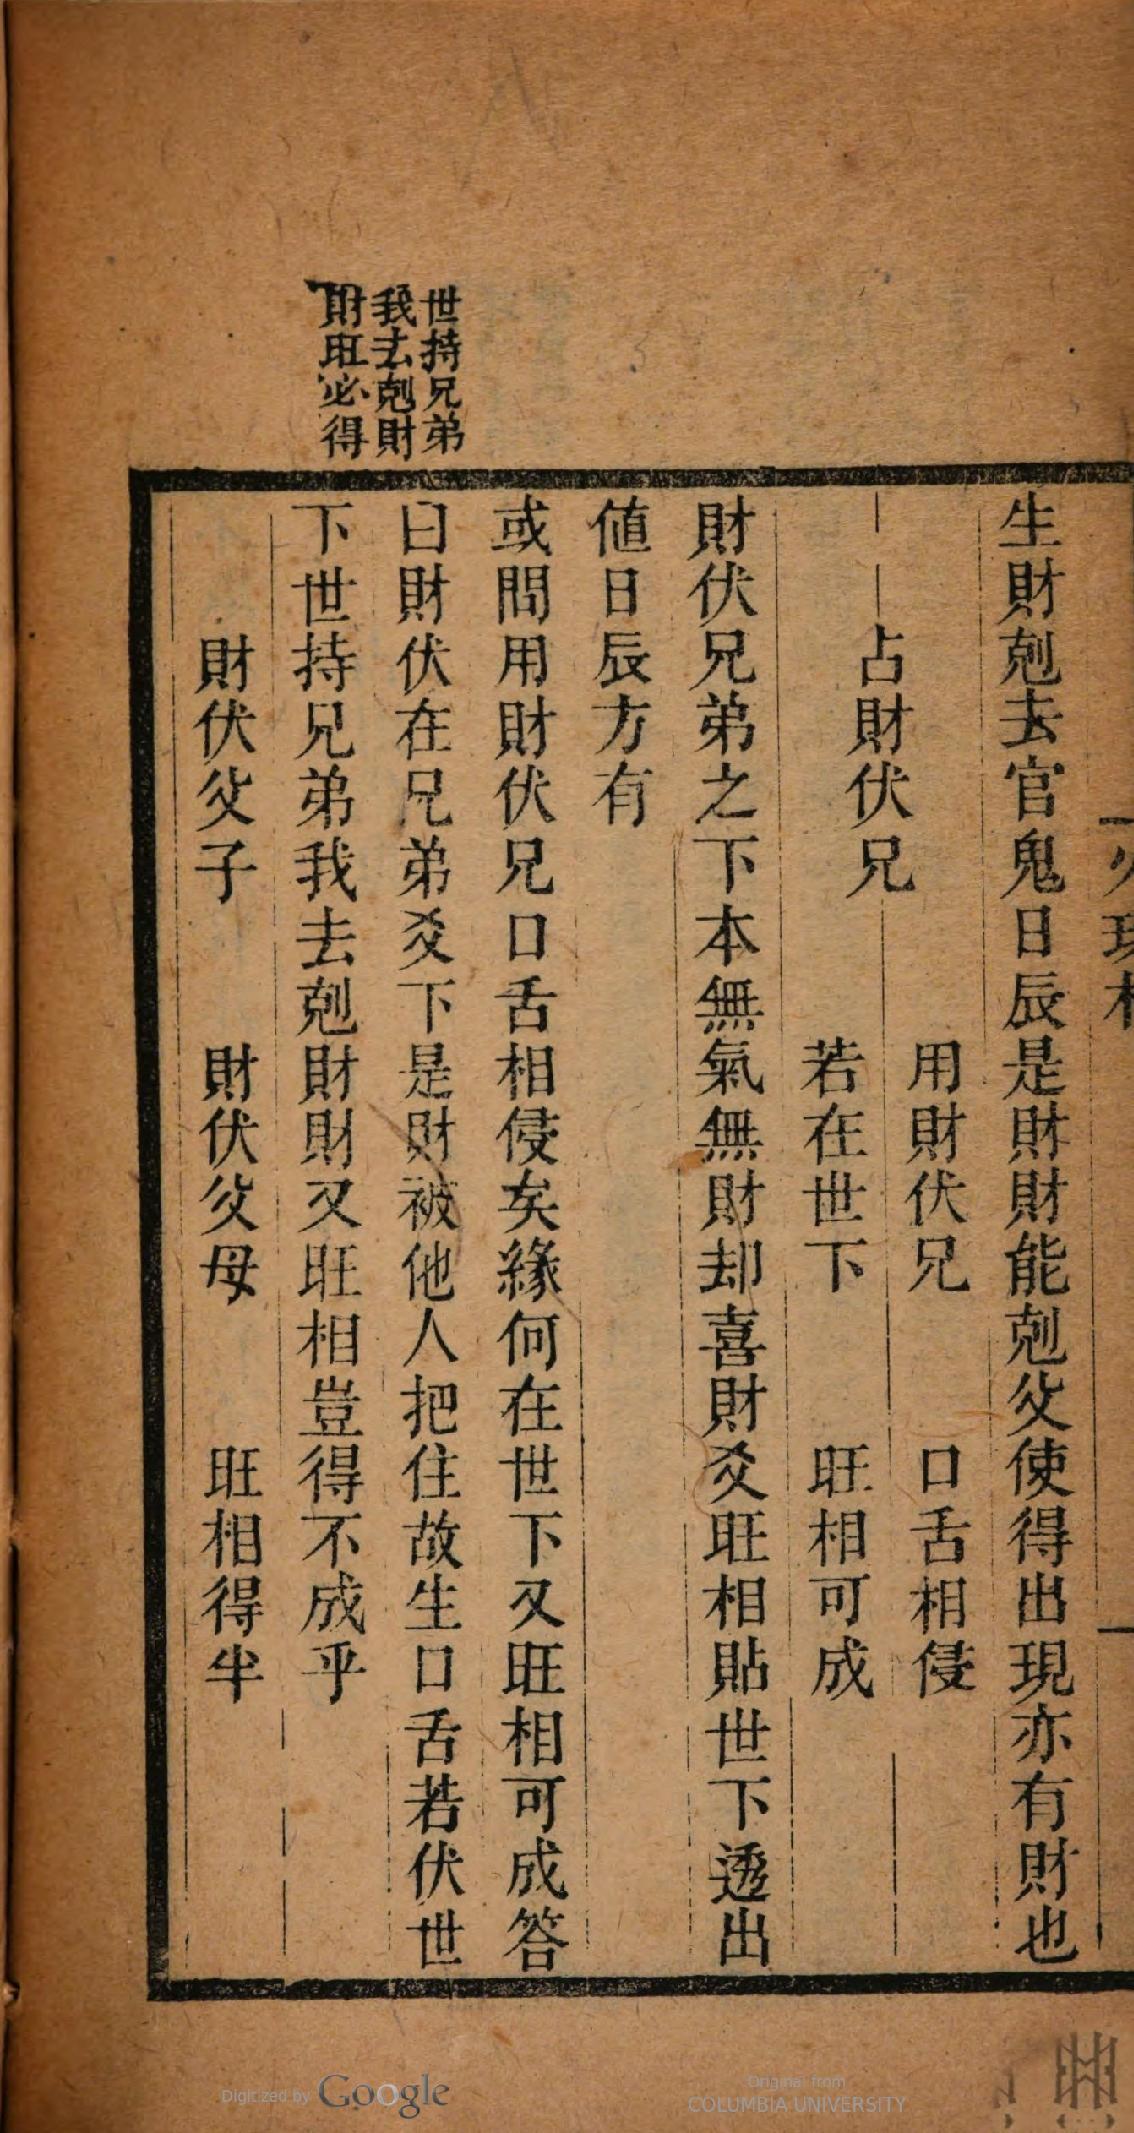 生財剋去官鬼日辰是財財能剋父使得出現亦有財也
占財伏兄
用財伏兄 口舌相侵
若在世下 旺相可成
財伏兄弟之下本無氣無財却喜財爻旺相貼世下透出
值日辰方有
或問用財伏兄口舌相侵矣緣何在世下又旺相可成答
曰財伏在兄弟爻下是財被他人把住故生口舌若伏世
下世持兄弟我去剋財財又旺相豈得不成乎
財伏父子 財伏父母 旺相得半
世持兄弟
我去剋財
財旺必得
Digitized by Google
Original from
COLUMBIA UNIVERSITY